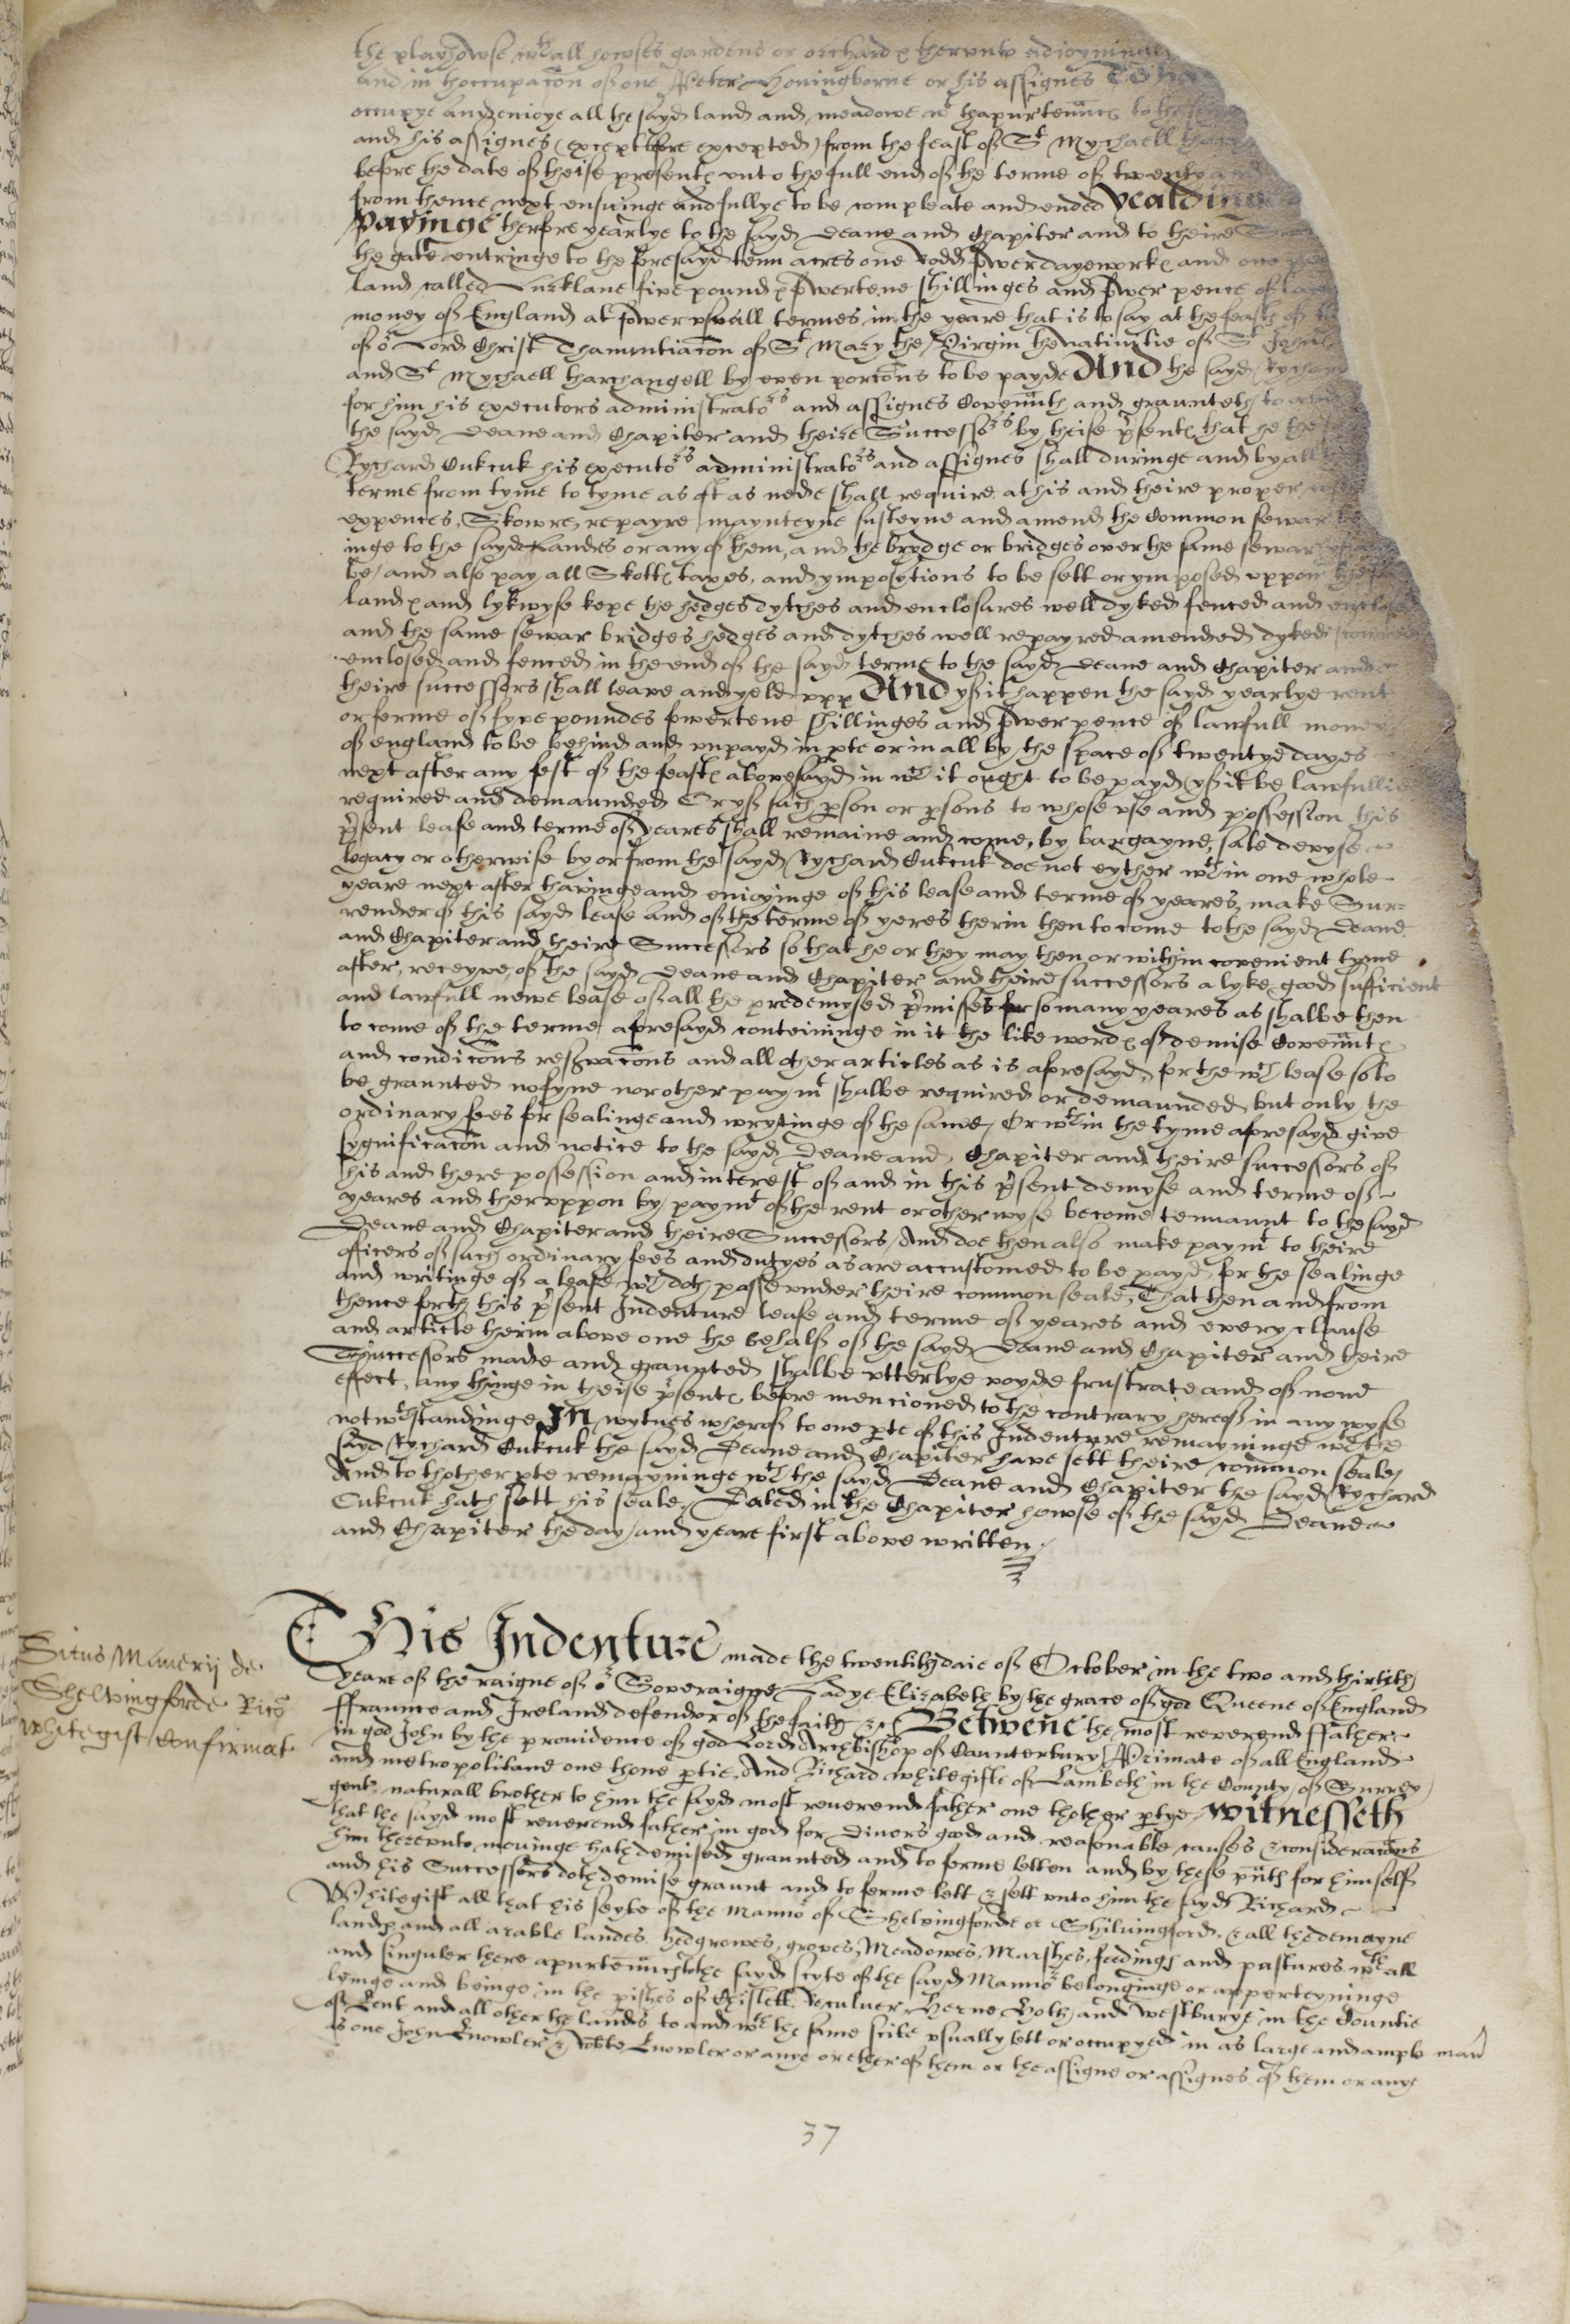 the playhowse wth all howses gardens or orchard thervnto adioyninge
and in thoccupacon of one Peter Honingborne or his assignes To
occupye and enioye all the sayd land and meadowe wt thapurtennces to the
and his assignes (except before excepted) from the feast of St Mychaell
before the date of theise presentes vnto the full end of the terme of twenty
from thence next ensuinge and fullye to be compleate and ended Yealdinge
Payinge therfore yearlye to the sayd Deane and Chapiter and to theire
the gate entringe to the foresayd tenn acres one rodd fower dayeworkes and one
land called Lucklane five poundes fowertene shillinges and fower pence of
money of England at fower vsuall termes in the yeare that is to say at the feastes of
of or Lord Christ Thannuntiacon of St Mary the Virgin the nativitie of St John
and St Mychaell tharchangell by even porcons to be payde And the sayd Rychard
for him his executors administrators and assignes Covennteth and graunteth to
the sayd Deane and Chapiter and theire Successors by theise prsentes that he the
Rychard Cukcuk his executors administrators and assignes shall duringe and by all
terme from tyme to tyme as oft as nede shall require at his and theire proper
expences, Skowre, repayre mayntayne susteyne and amend the Common sewar
inge to the sayd Landes or any of them, and the brydge or bridges over the same sewar
be, and also pay all Skottes taxes, and ymposytions to be sett or ymposed vppon
landes and lykwyse kepe the hedges dytches and enclosures well dyked fenced and
and the same sewar bridges hedges and dytches well repayred amended dyked
enclosed and fenced in the end of the sayd terme to the sayd Deane and Chapiter and
theire successors shall leave and yeld vpp And yf it happen the sayd yearlye rent
or ferme of fyve poundes fowertene shillinges and fower pence of lawfull money
of england to be behind and vnpayd in pte or in all by the space of twentye dayes
next after any fest of the feastes abovesayd in wch it ought to be payd yf it be lawfullie
required and demaunded Or yf such person or persons to whose vse and possession this
prsent lease and terme of yeares shall remaine and come, by bargayne, sale devyse
legacy or otherwise by or from the sayd Rychard Cukcuk doe not eyther wthin one whole
yeare next after thavinge and enioyinge of this lease and terme of yeares, make Sur=
render of this sayd lease and of the terme of yeres therin then to come to the sayd Deane
and Chapiter and theire Successors so that he or they may then or within convenient tyme
after, receyve of the sayd Deane and Chapiter and theire successors a lyke good sufficient
and lawfull newe lease of all the predemysed prmisses for so many yeares as shalbe then
to come of the terme aforesayd conteininge in it the like wordes of demise Covenntes
and condicons reservacons and all other articles as is aforesayd, for the wch lease so to
be graunted no fyne nor other paymt shalbe required or demaunded but only the
ordinary fees for sealinge and wrytinge of the same, Or wthin the tyme aforesayd give
sygnificacon and notice to the sayd Deane and Chapiter and theire successors of
his and there possession and interest of and in this prsent demyse and terme of
yeares and thervppon by paymt of the rent or otherwyse become tennaunt to the sayd
Deane and Chapiter and theire Successors, And doe then also make paymt to theire
officers of such ordinary fees and dutyes as are accustomed to be payd for the sealinge
and writinge of a lease wch doth passe vnder theire common seale, That then and from
thence forth this prsent Indenture lease and terme of yeares and every clause
and article therin above one the behalf of the sayd Deane and Chapiter and theire
Successors made and graunted shalbe vtterlye voyde frustrate and of none
effect, any thinge in theise prsentes before mencioned to the contrary hereof in any wyse
notwthstandinge In wytnes wherof to one pte of this Indenture remayninge wth the
sayd Rychard Cukcuk the sayd Deane and Chapiter have sett theire common seale,
And to thother pte remayninge wth the sayd Deane and Chapiter the sayd Rychard
Cukcuk hath sett his seale. Dated in the Chapiter howse of the sayd Deane
and Chapiter the day and yeare first above written
Situs Manerij de
Shelvingforde Rico
Whitegift Confirmat
This Indenture made the twentith daie of October in the two and thirtith
yeare of the raigne of or Soveraigne Ladye Elizabeth by the grace of god Queene of England
ffraunce and Ireland defendor of the faith &c Betwene the most reverend ffather
in god John by the providence of god Lord Archbishop of Caunterbury Primate of all England
and metropolitane one thone ptie, And Richard whitegifte of Lambeth in the County of Surrey
gent, naturall brother to him the sayd most reuerend father one thother ptye witnesseth
that the sayd most reuerend father in god for Diuers good and reasonable causes & consideracons
him therevnto movinge hath demised graunted and to ferme letten and by these pnts for himself
and his Successors doth demise graunt and to ferme lett & sett vnto him the sayd Richard
Whitegift all that his seyte of the Mannor of Shelvingforde or Shilvingford, & all the demayne
landes and all arable landes hedgrowes, groves, Meadowes, Marshes, feedings and pastures wth all
and singuler there apurtennces to the sayd scyte of the sayd Mannor belonginge or apperteyninge
lyinge and beinge in the pishes of Chislett, Reculuer Herne Hoth and Westburye in the Countie
of Kent and all other the landes to and wth the same scite vsually lett or occupyed in as large and ample man
as one John Knowler & Robte Knowler or anye or ether of them or the assigne or assignes of them or anye
37